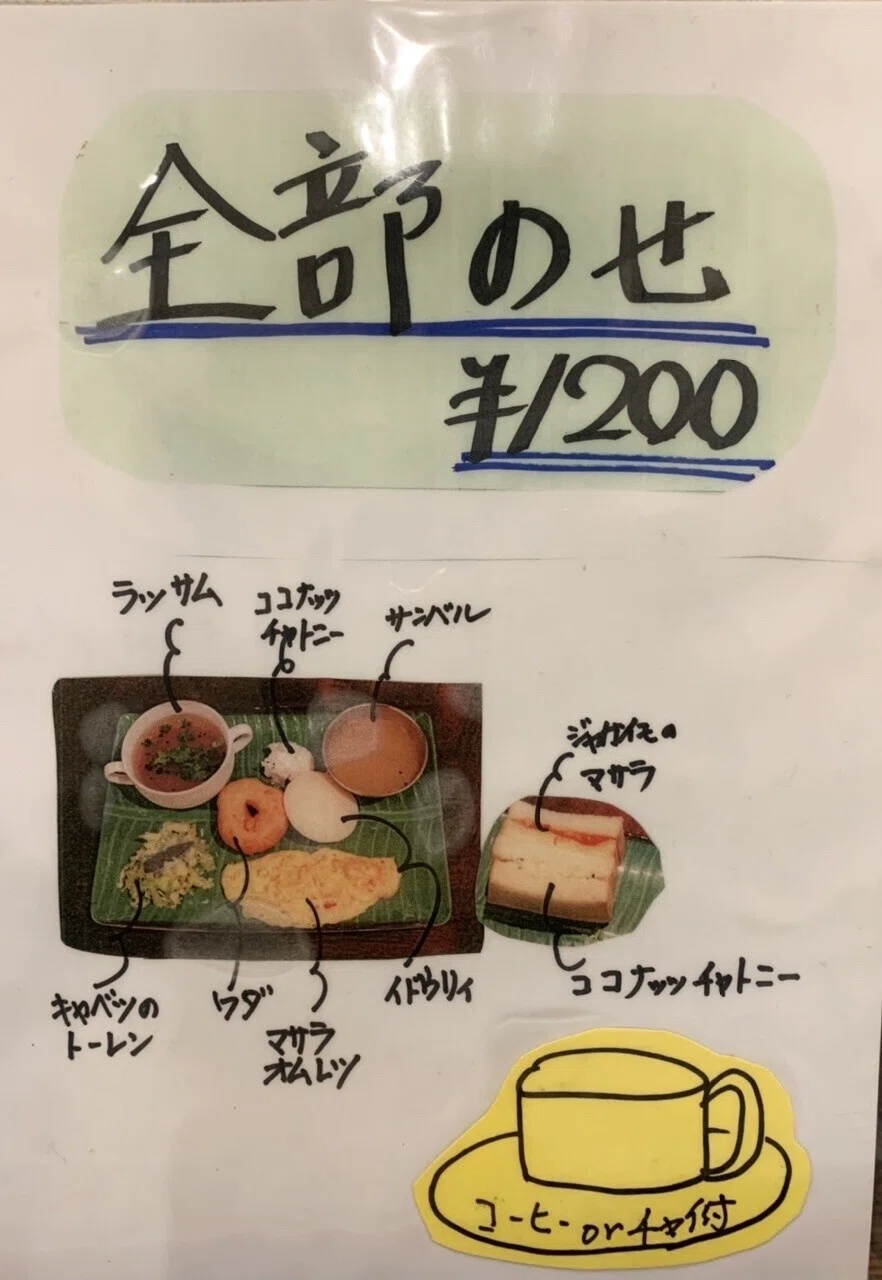 全部のせ
¥1200
ラッサム
ココナッツ
チャトニー
サンバル
ジャガイモの
マサラ
キャベツの
トーレン
ワダ
マサラ
オムレツ
イドゥリィ
ココナッツチャトニー
コーヒーorチャイ付